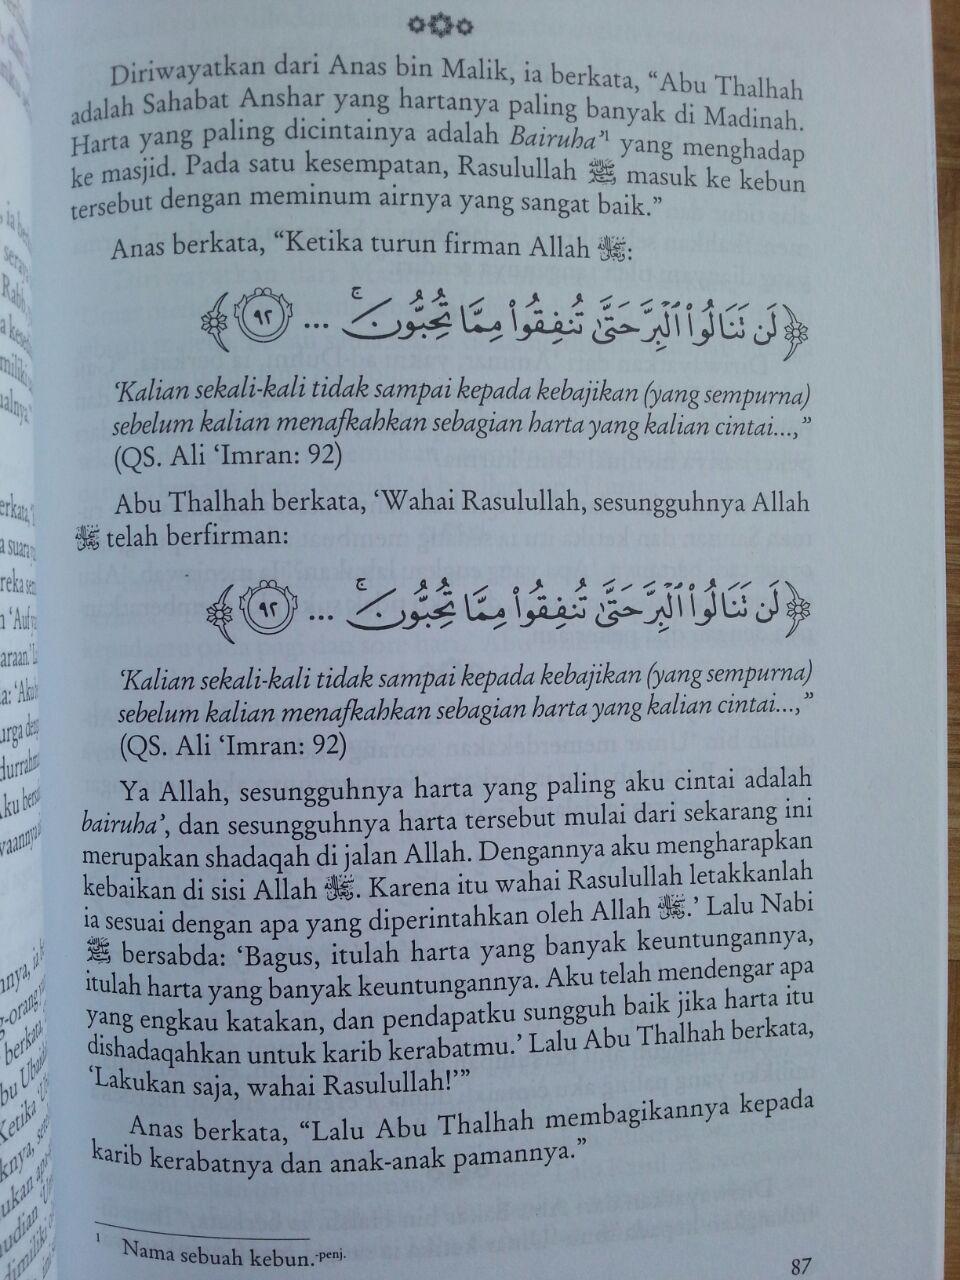 Diriwayatkan dari Anas bin Malik, ia berkata, “Abu Thalhah
adalah Sahabat Anshar yang hartanya paling banyak di Madinah.
Harta yang paling dicintainya adalah Bairuha’¹ yang menghadap
ke masjid. Pada satu kesempatan, Rasulullah ﷺ masuk ke kebun
tersebut dengan meminum airnya yang sangat baik.”
Anas berkata, “Ketika turun firman Allah ﷻ:
﴿لَن تَنَالُوا۟ ٱلْبِرَّ حَتَّىٰ تُنفِقُوا۟ مِمَّا تُحِبُّونَ ۚ ... ٩٢﴾
‘Kalian sekali-kali tidak sampai kepada kebajikan (yang sempurna)
sebelum kalian menafkahkan sebagian harta yang kalian cintai...,”
(QS. Ali ‘Imran: 92)
Abu Thalhah berkata, ‘Wahai Rasulullah, sesungguhnya Allah
ﷻ telah berfirman:
﴿لَن تَنَالُوا۟ ٱلْبِرَّ حَتَّىٰ تُنفِقُوا۟ مِمَّا تُحِبُّونَ ۚ ... ٩٢﴾
‘Kalian sekali-kali tidak sampai kepada kebajikan (yang sempurna)
sebelum kalian menafkahkan sebagian harta yang kalian cintai...,”
(QS. Ali ‘Imran: 92)
Ya Allah, sesungguhnya harta yang paling aku cintai adalah
bairuha’, dan sesungguhnya harta tersebut mulai dari sekarang ini
merupakan shadaqah di jalan Allah. Dengannya aku mengharapkan
kebaikan di sisi Allah ﷻ. Karena itu wahai Rasulullah letakkanlah
ia sesuai dengan apa yang diperintahkan oleh Allah ﷻ.’ Lalu Nabi
ﷺ bersabda: ‘Bagus, itulah harta yang banyak keuntungannya,
itulah harta yang banyak keuntungannya. Aku telah mendengar apa
yang engkau katakan, dan pendapatku sungguh baik jika harta itu
dishadaqahkan untuk karib kerabatmu.’ Lalu Abu Thalhah berkata,
‘Lakukan saja, wahai Rasulullah!’”
Anas berkata, “Lalu Abu Thalhah membagikannya kepada
karib kerabatnya dan anak-anak pamannya.”
¹ Nama sebuah kebun.-penj.
87